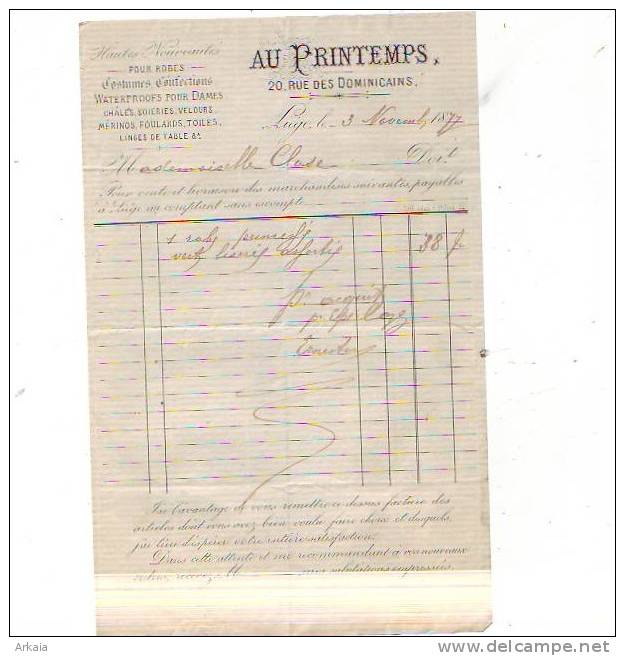 Hautes Nouveautés
POUR ROBES
Costumes Confections
WATERPROOFS POUR DAMES
CHÂLES, SOIERIES, VELOURS
MÉRINOS, FOULARDS, TOILES,
LINGES DE TABLE &a.
AU PRINTEMPS,
20, RUE DES DOMINICAINS,
Liège, le 3 Novemb 1877
Mademoiselle Doit
Pour vente et livraison des marchandises suivantes, payables
à Liège au comptant sans escompte
1 robe
vert assortis 38 f
Pr acquit
J'ai l'avantage de vous remettre ci-dessus facture des
articles dont vous avez bien voulu faire choix et desquels,
j'ai lieu d'espérer votre entière satisfaction.
Dans cette attente et me recommandant à vos nouveaux
ordres, recevez M mes salutations empressées.
Arkaia
www.delcampe.net